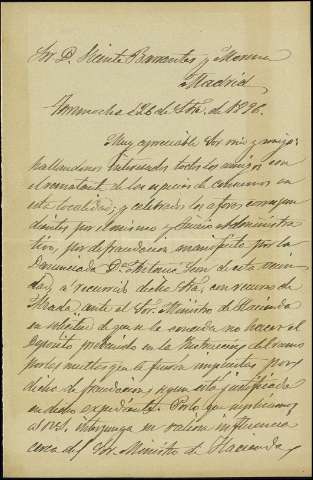 Sor. D. Vicente Barrantes y Moreno
Madrid
Torremocha 26 de Stre. de 1896.
Muy apreciable Sor. mio y amigo:
hallandonos interesados todos los amigos con
el rematante de las especies de consumos en
esta localidad, y celebrados los aforos correspon
dientes por dominio y
cion, por defraudacion manifiesta por la
denunciada Da. Antonia de esta vecin
dad, a recurrido dicha Sra. en recurso de
Alzada, ante el Sor. Ministro de Hacienda
en solicitud de que se le conceda no hacer el
deposito prevenido en la Instruccion del ramo
por las multas que le fueron impuestas por
dicha defraudacion segun está justificada
en dicho expediente. Por lo que suplicamos
a V. S. interponga su valiosa influencia
cerca del Sor. Ministro de Hacienda y